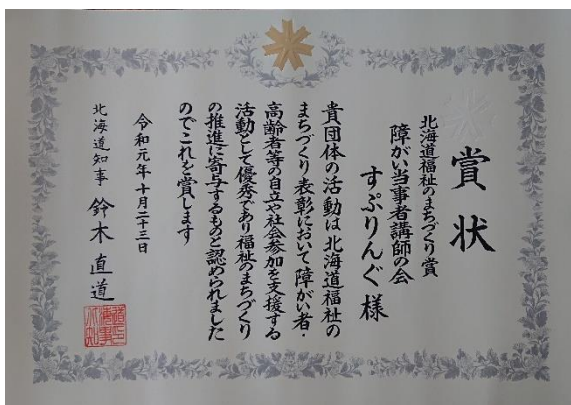 賞状
北海道福祉のまちづくり賞
障がい当事者講師の会
すぷりんぐ様
貴団体の活動は北海道福祉の
まちづくり表彰において障がい者・
高齢者等の自立や社会参加を支援する
活動として優秀であり福祉のまちづくり
の推進に寄与するものと認められました
のでこれを賞します
令和元年十月二十三日
北海道知事 鈴木直道